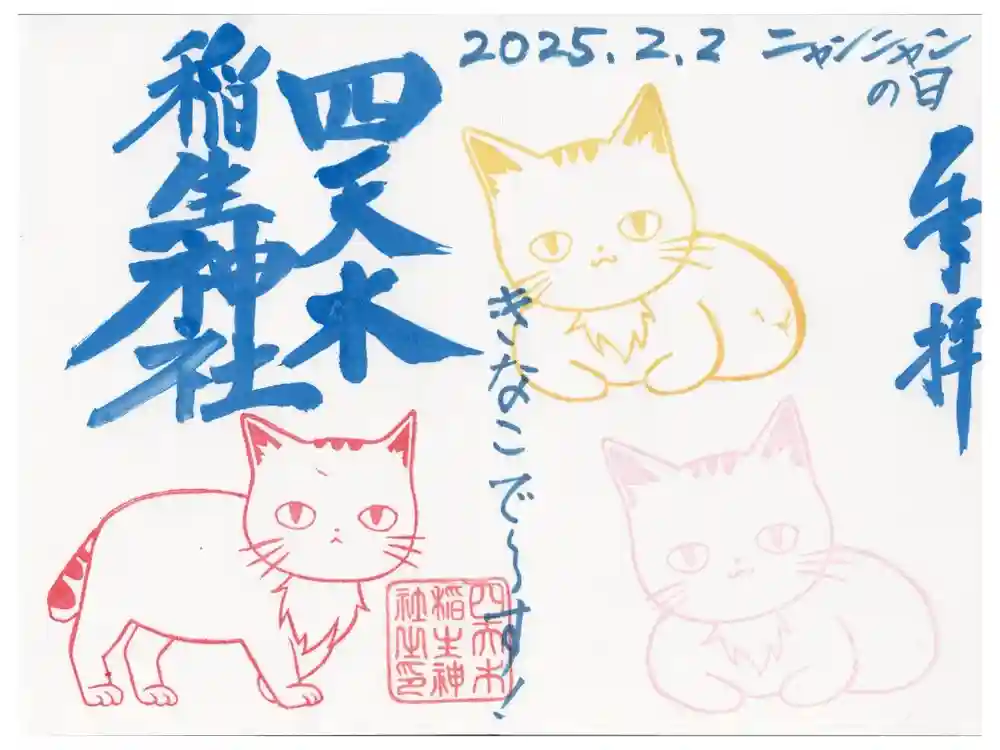 2025.2.2 ニャンニャン
の日
奉拝
四天木
稲生神社
きなこで〜す！
四天木
稲生神
社之印